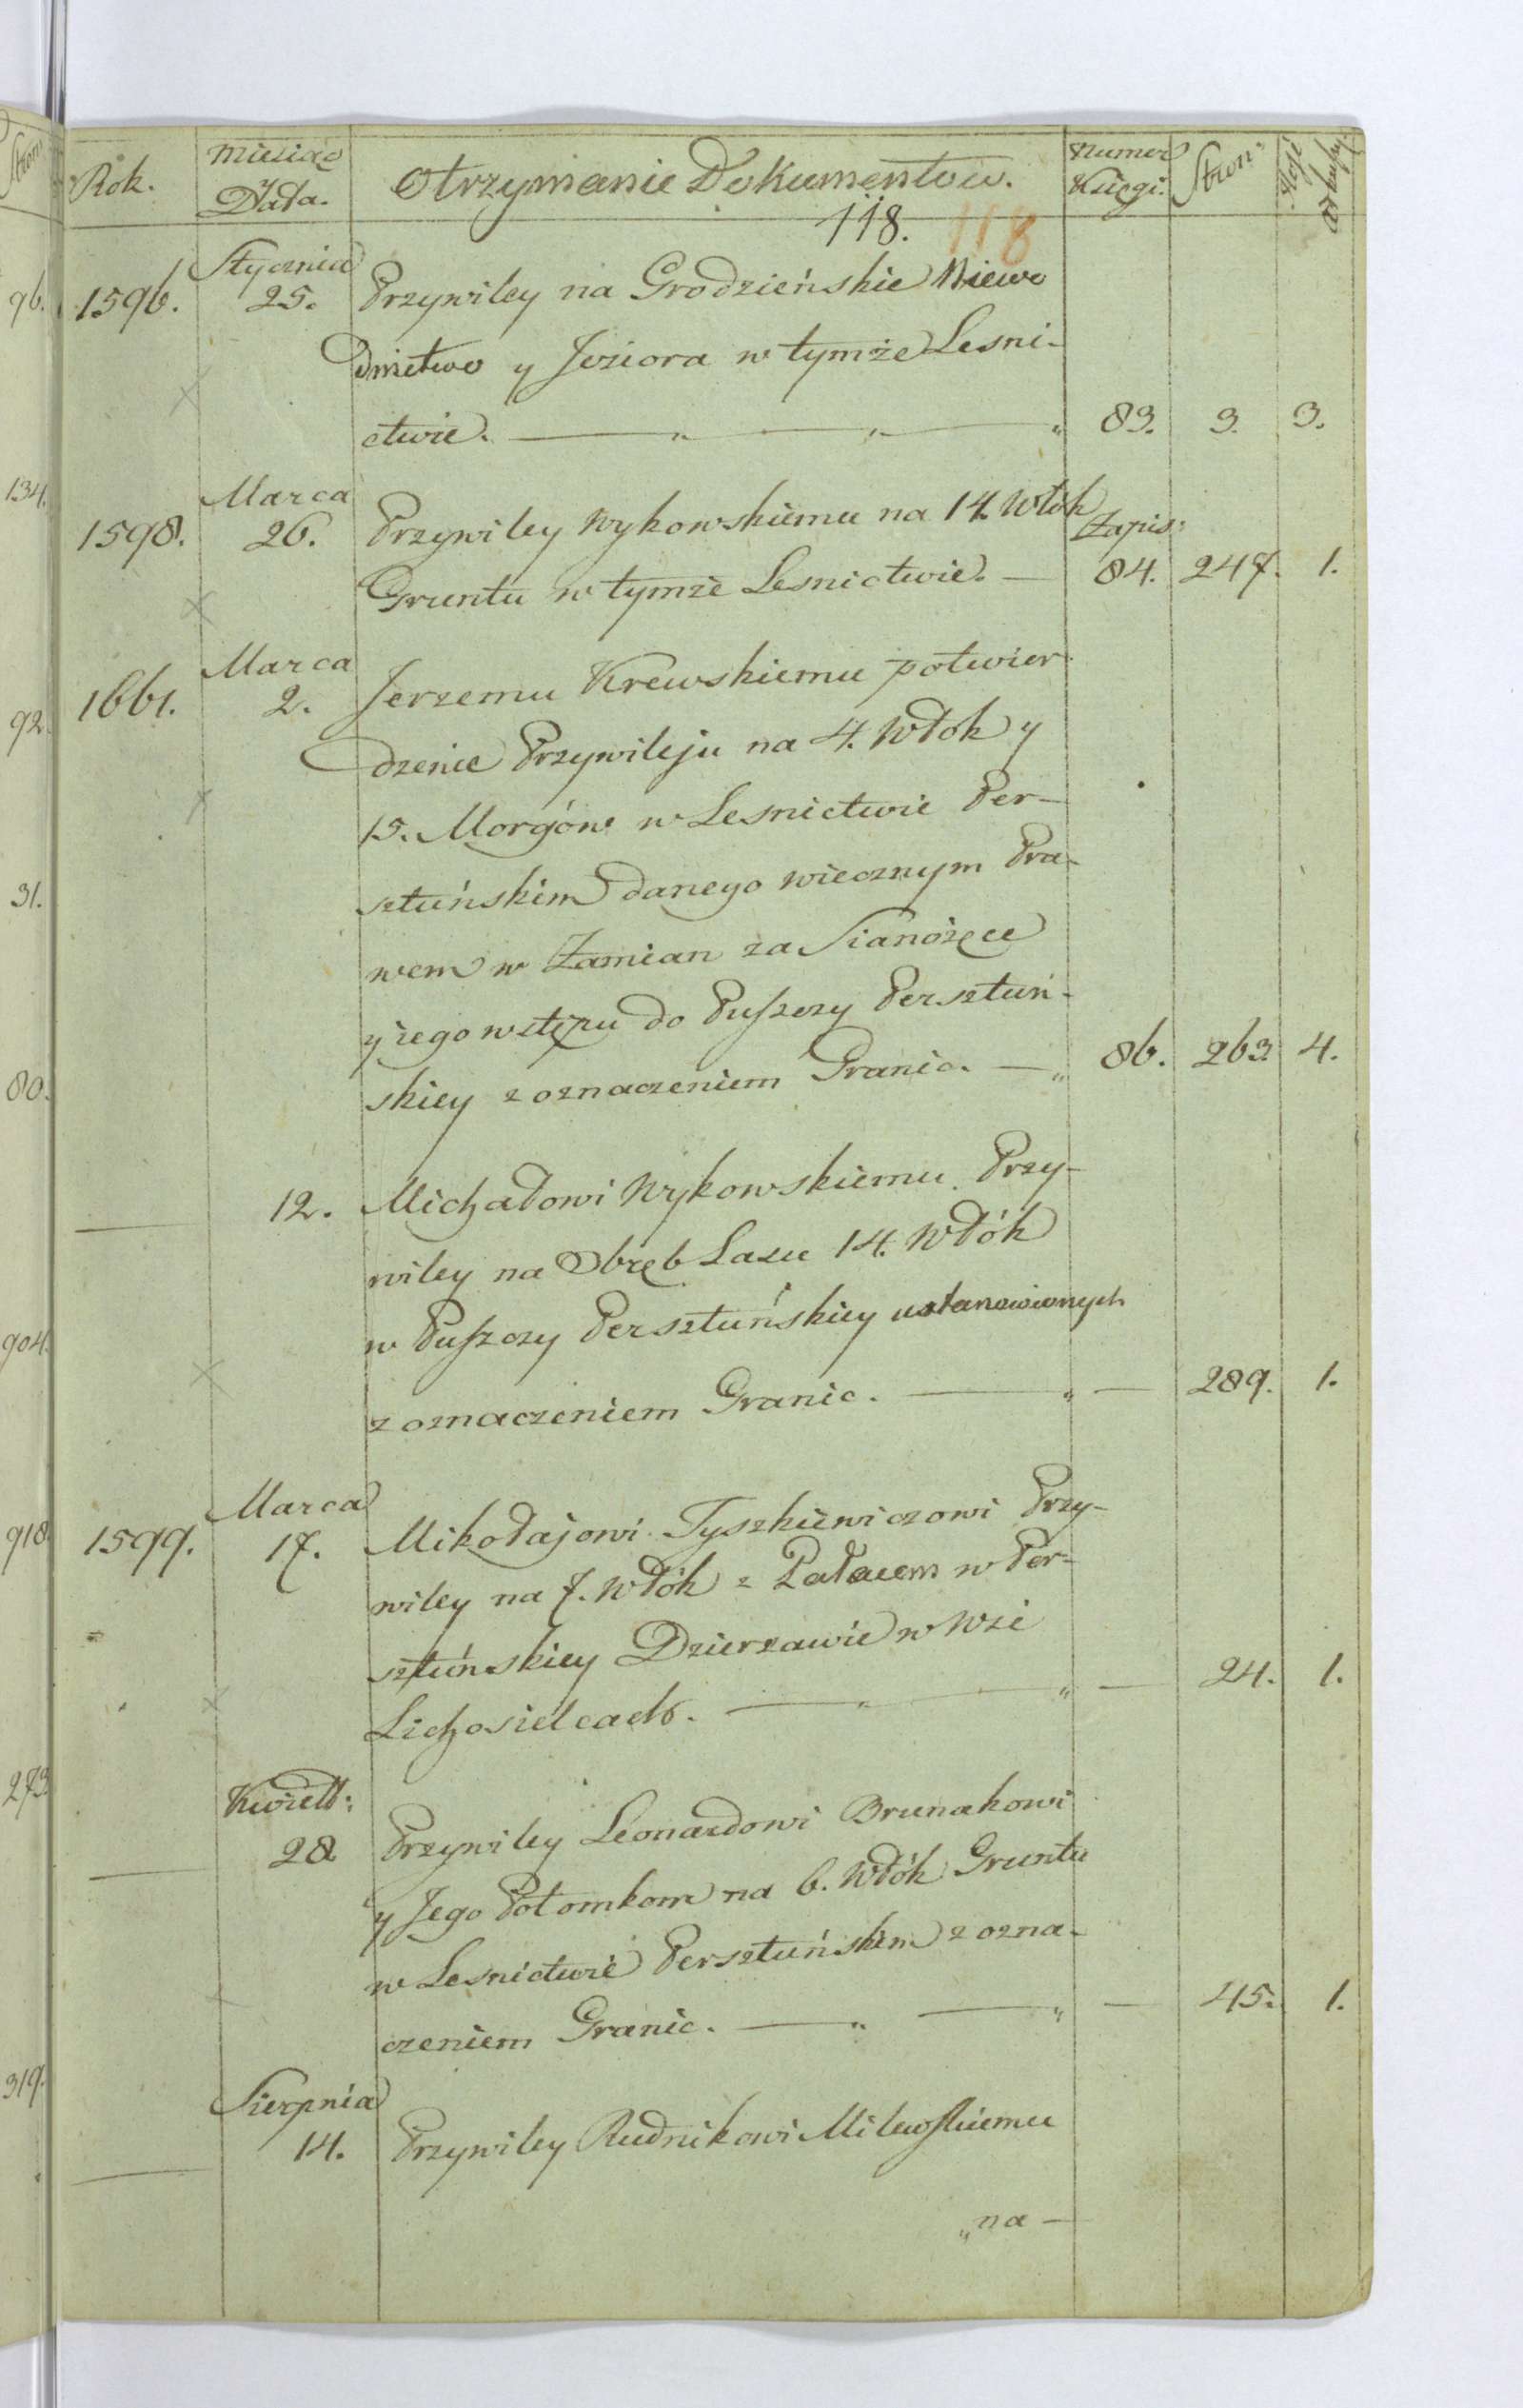 Rok. Miesiąc y Data. Otrzymanie Dokumentow. Numer Księgi. Stron:
118. 118
Stycznia
1596. 25. Przywiley na Grodzieńskie Niewo
dnictwo y Jeziora w tymże Lesni-
ctwie. 83. 3. 3.
Marca
1598. 26. Przywiley Wykowskiemu na 14. Włok Zapis:
Gruntu w tymże Lesnictwie. 84. 247. 1.
Marca
1661. 2. Jerzemu Krewskiemu potwier-
dzenie Przywileju na 4. Włok y
15. Morgów w Lesnictwie Per-
sztuńskim danego wiecznym Pra-
wem w Zamian za Sianożęce
y iego wstępu do Puszczy Persztuń-
skiey z oznaczeniem Granic. 86. 263. 4.
12. Michałowi Wykowskiemu Przy-
wiley na Obręb Lasu 14. Włók
w Puszczy Persztuńskiey ustanowionych
z oznaczeniem Granic. 289. 1.
Marca
1599. 17. Mikołajowi Tyszkiewiczowi Przy-
wiley na 7. Włók z Pałacem w Per-
sztuńskiey Dzierżawie w Wsi
Lichosielcach. 24. 1.
Kwiett:
28 Przywiley Leonardowi Brunakowi
y Jego Potomkom na 6. Włók Gruntu
w Lesnictwie Persztuńskim z ozna-
czeniem Granic. 45. 1.
Sierpnia
14. Przywiley Rudnikowi Milewskiemu
„na —
Stron
96.
134.
92.
31.
80.
904.
918.
273
319.